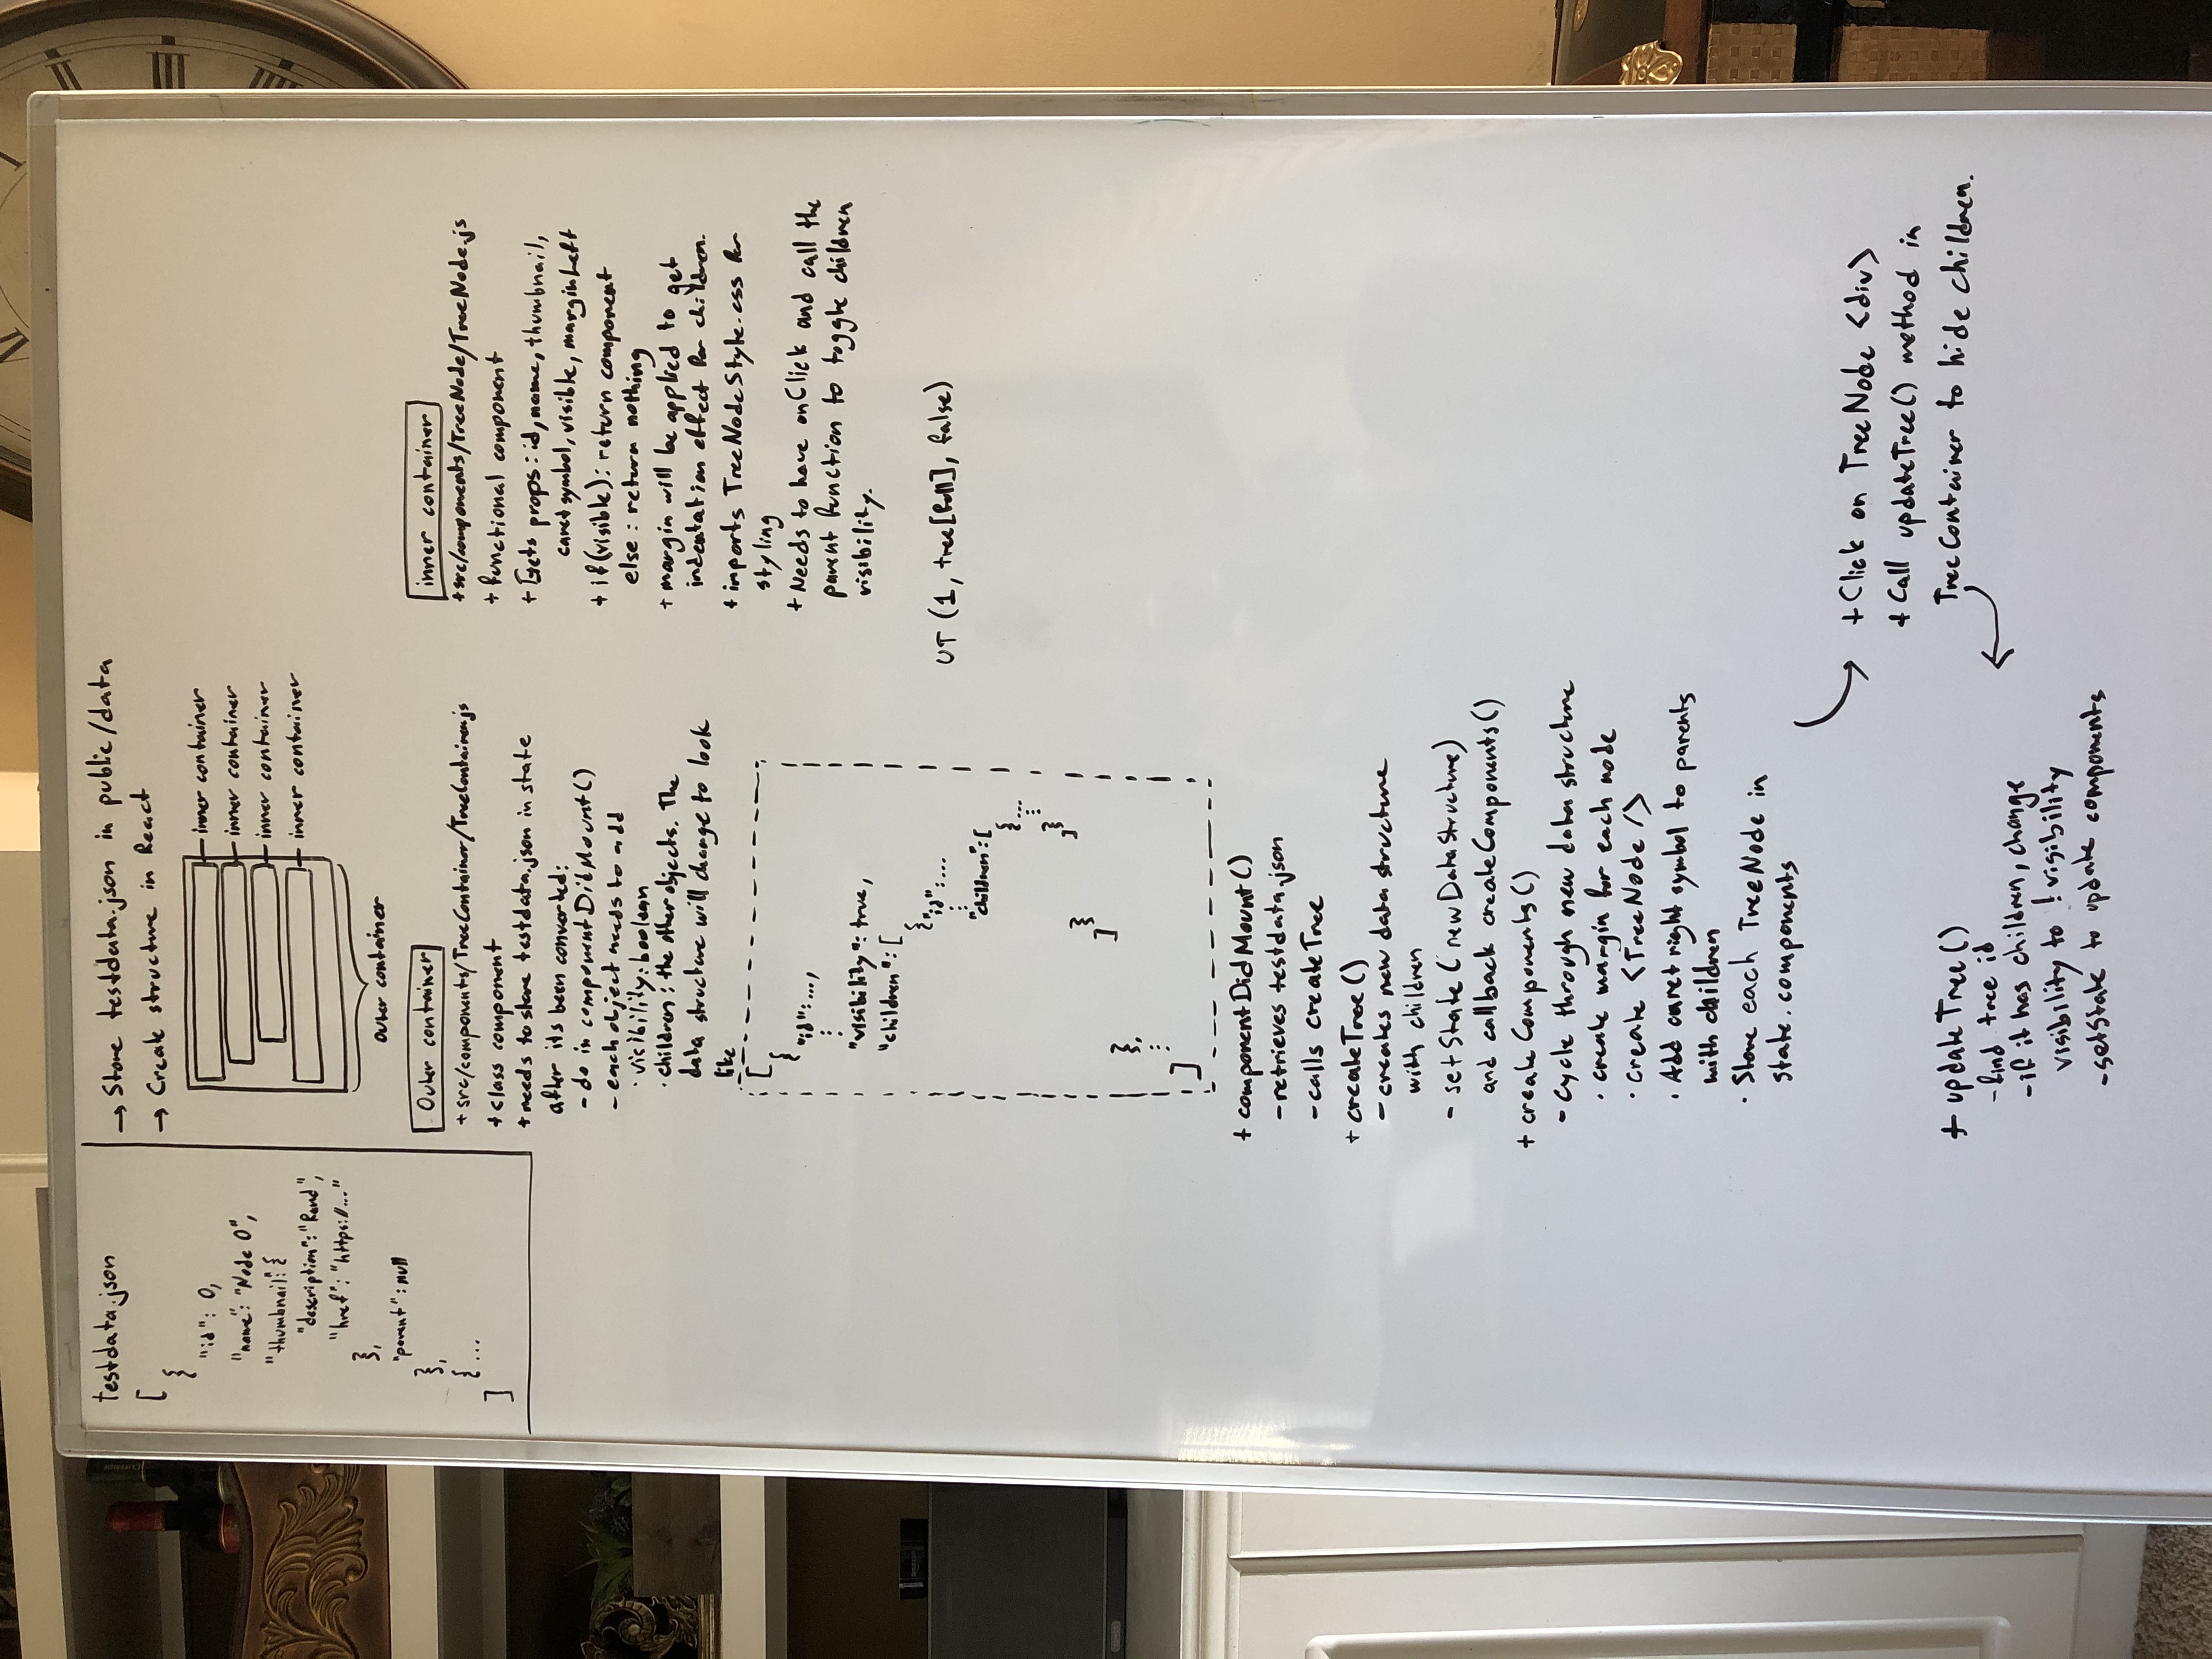 testdata.json
[
{
"id": 0,
"name": "Node 0",
"thumbnail": {
"description": "Rand",
"href": "https://..."
},
"parent": null
},
{...
]
→ Store testdata.json in public/data
→ Create structure in React
inner container
inner container
inner container
inner container
Outer container
Outer container
+ src/components/TreeContainer/TreeContainer.js
+ class component
+ needs to store testdata.json in state
after its been converted:
- do in componentDidMount()
- each object needs to add
· visibility: boolean
· children: the other objects. The
data structure will change to look
like
[
{
"id": ...,
⋮
"visibility": true,
"children": [
{"id": ...
⋮
"children": [
{...
⋮
}
]
}
]
},
⋮
]
+ componentDidMount()
- retrieves testdata.json
- calls createTree
+ createTree()
- creates new data structure
with children
- setState(newDataStructure)
and callback createComponents()
+ createComponents()
- Cycle through new data structure
· create margin for each node
· create <TreeNode />
· Add caret right symbol to parents
with children
· Store each TreeNode in
state.components
inner container
+ src/components/TreeNode/TreeNode.js
+ functional component
+ Gets props: id, name, thumbnail,
caret symbol, visible, marginLeft
+ if(visible): return component
else: return nothing
+ margin will be applied to get
indentation effect for children.
+ imports TreeNodeStyle.css for
styling
+ Needs to have onClick and call the
parent function to toggle children
visibility.
UT (1, tree[full], false)
+ Click on TreeNode <div>
+ Call updateTree() method in
TreeContainer to hide children.
+ updateTree()
- find tree id
- if it has children, change
visibility to !visibility
- setState to update components